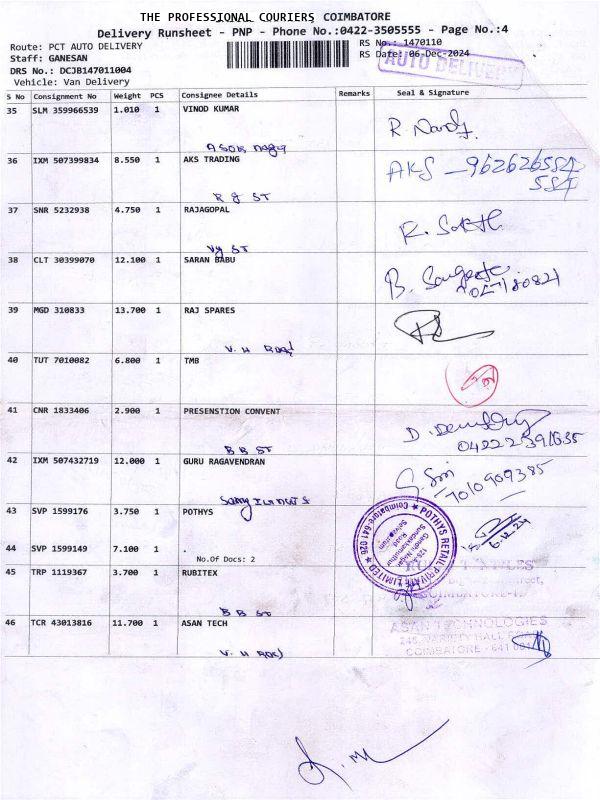 THE PROFESSIONAL COURIERS COIMBATORE
Delivery Runsheet - PNP - Phone No.:0422-3505555 - Page No.:4
Route: PCT AUTO DELIVERY
RS No.: 1470110
Staff: GANESAN
RS Date: 06-Dec-2024
AUTO DELIVERY
DRS No.: DCJB147011004
Vehicle: Van Delivery
S No Consignment No Weight PCS Consignee Details Remarks Seal & Signature
35 SLM 359966539 1.010 1 VINOD KUMAR
36 IXM 507399834 8.550 1 AKS TRADING
AKS - 9626265584
584
R g ST
37 SNR 5232938 4.750 1 RAJAGOPAL
R. Sakthi
Vy ST
38 CLT 30399070 12.100 1 SARAN BABU
39 MGD 310833 13.700 1 RAJ SPARES
V. H Road
40 TUT 7010082 6.800 1 TMB
41 CNR 1833406 2.900 1 PRESENSTION CONVENT
B B ST
42 IXM 507432719 12.000 1 GURU RAGAVENDRAN
7010909385
43 SVP 1599176 3.750 1 POTHYS
POTHYS RETAIL PRIVATE LIMITED
Coimbatore-641 026
6.12.24
44 SVP 1599149 7.100 1 .
No.Of Docs: 2
45 TRP 1119367 3.700 1 RUBITEX
B B ST
46 TCR 43013816 11.700 1 ASAN TECH
ASAN TECHNOLOGIES
COIMBATORE - 641 001
V. H Road